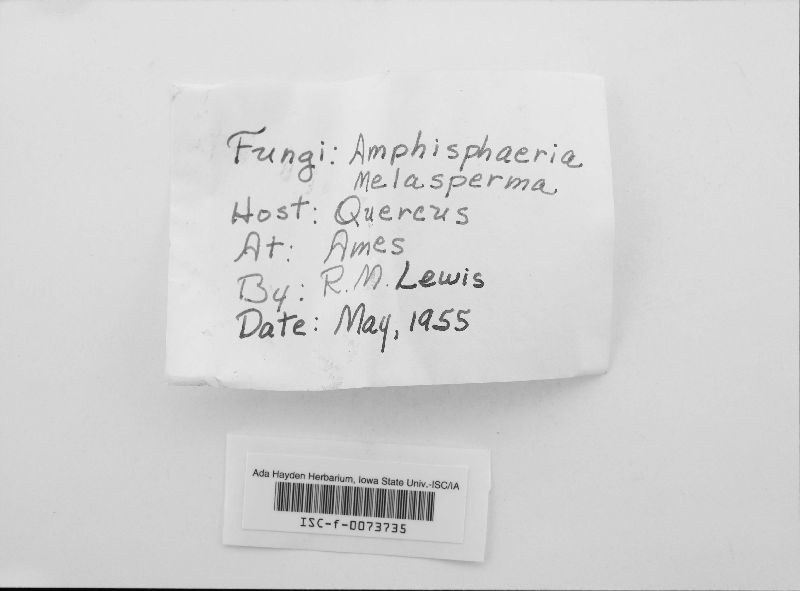 Fungi: Amphisphaeria
Melasperma
Host: Quercus
At: Ames
By: R.M. Lewis
Date: May, 1955
Ada Hayden Herbarium, Iowa State Univ.-ISC/IA
ISC-f-0073735